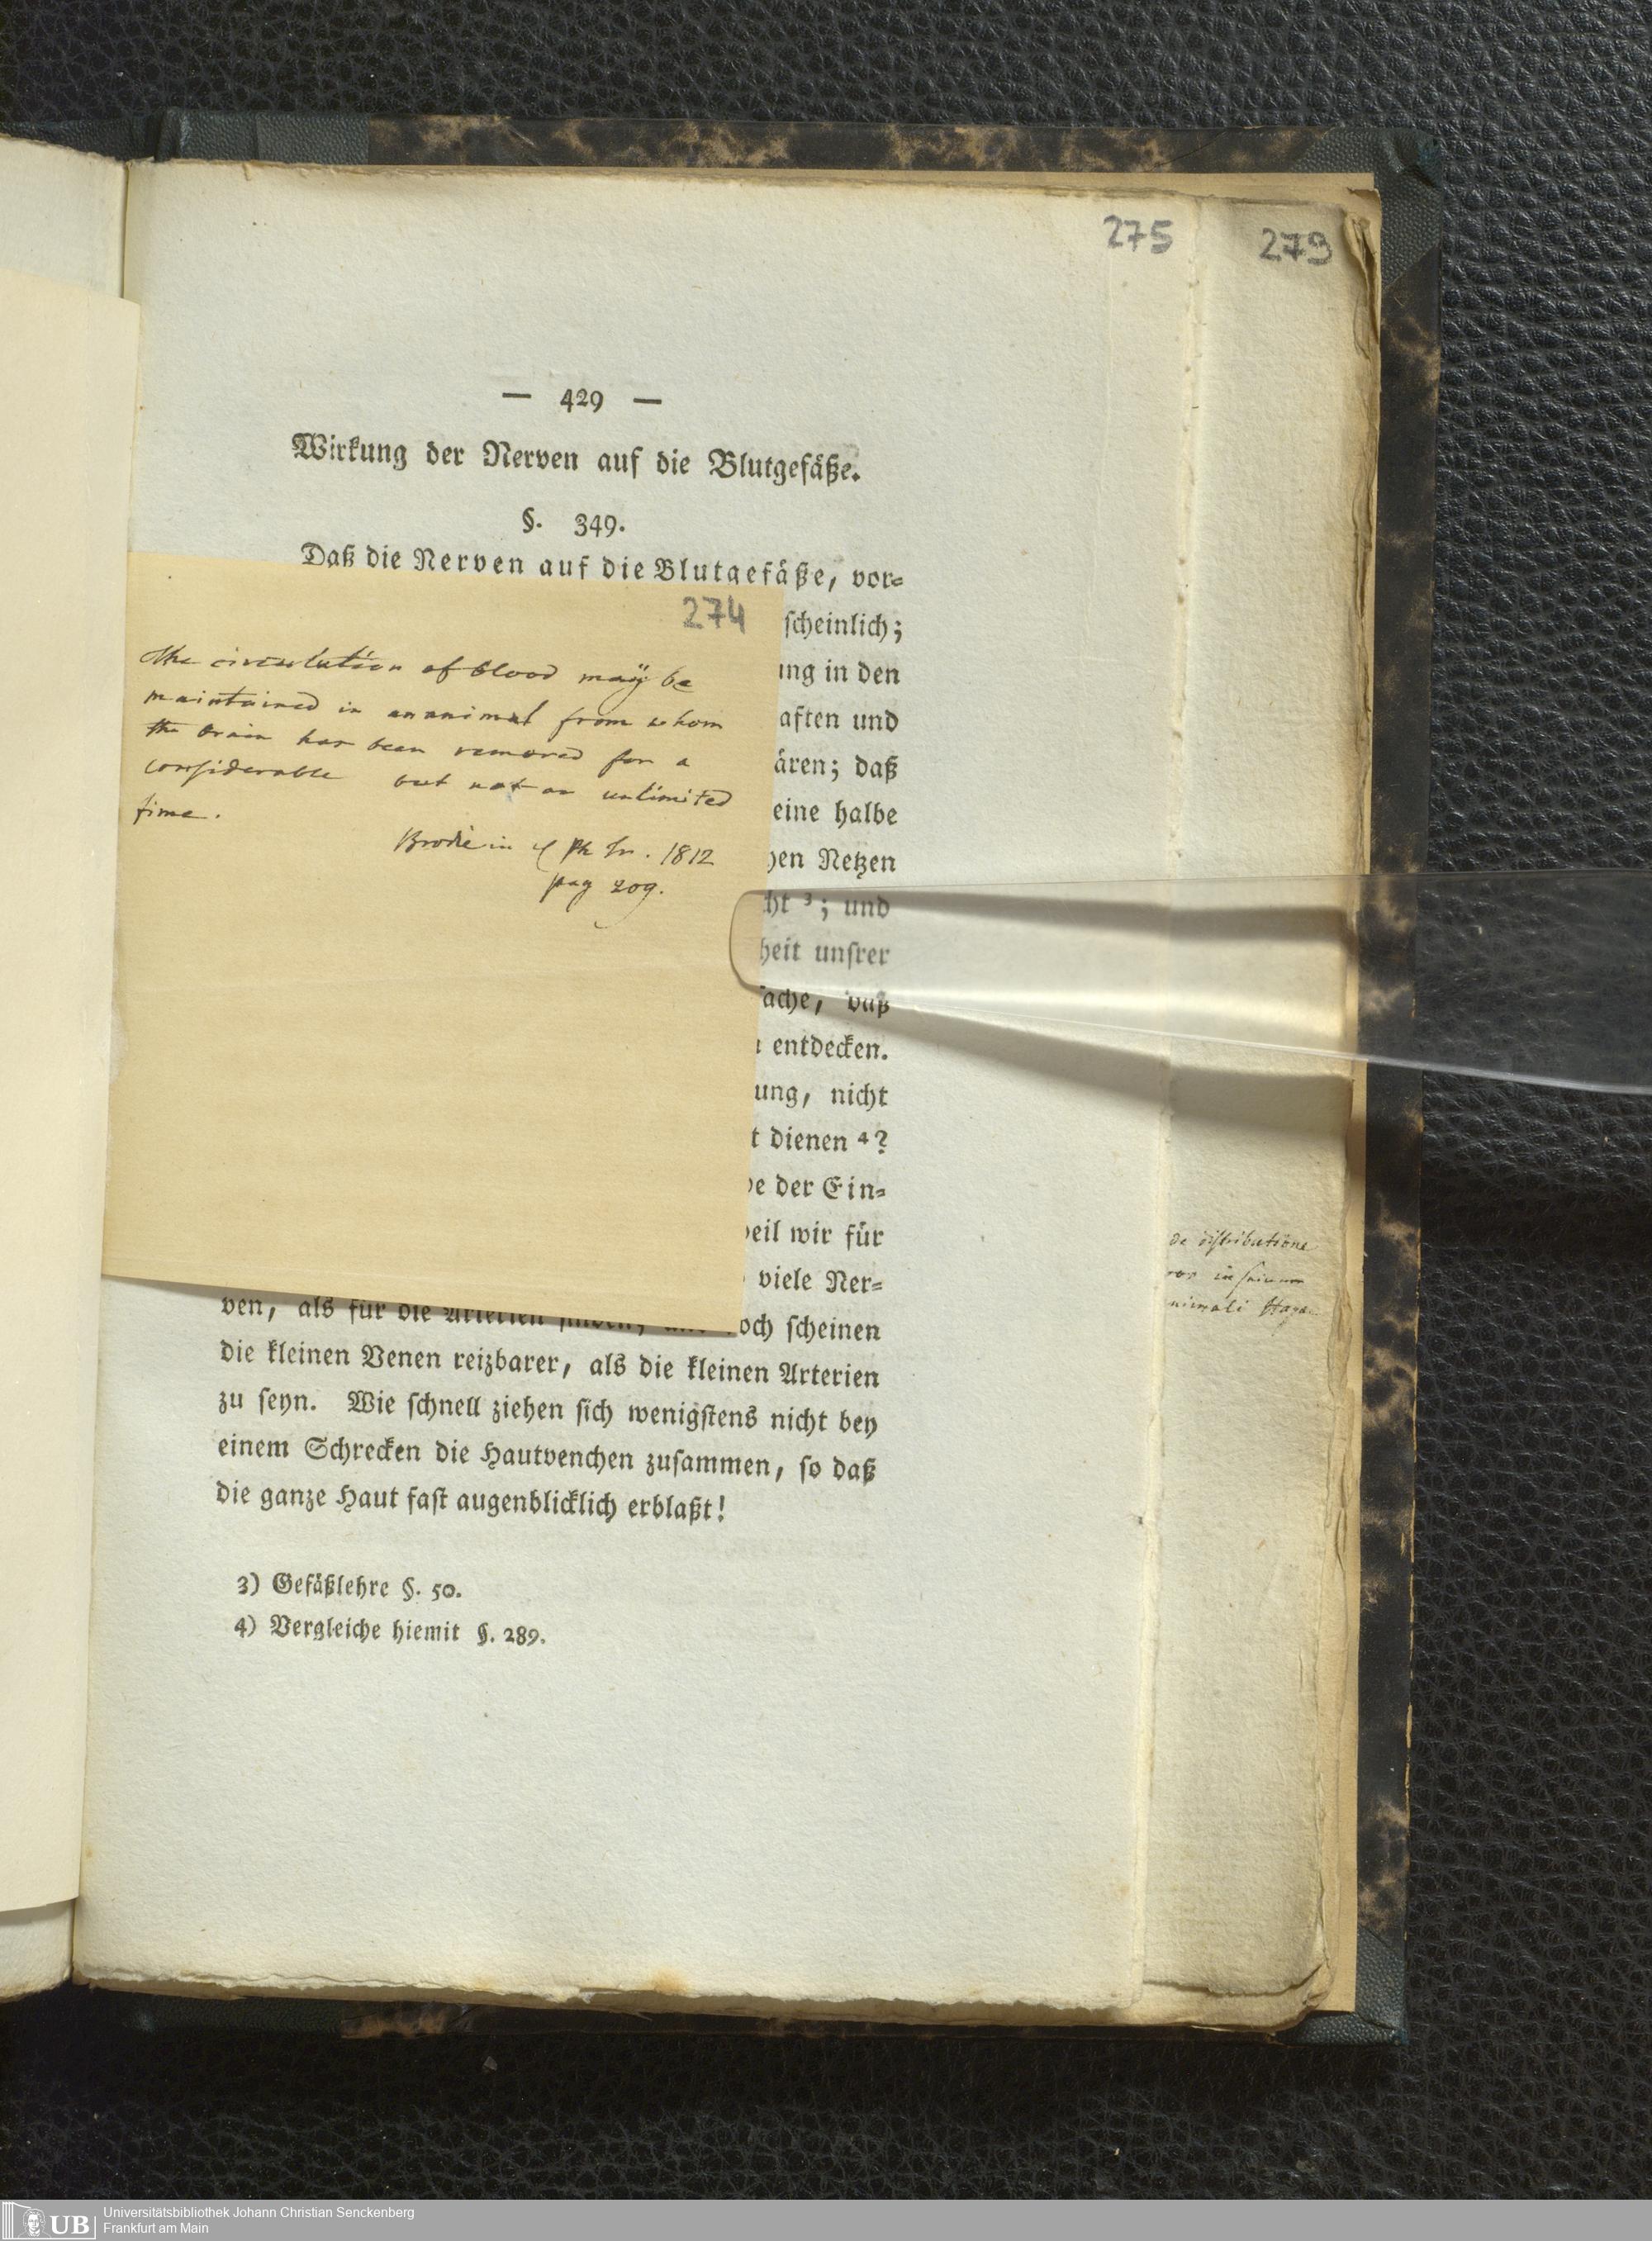 275
279
— 429 —
Wirkung der Nerven auf die Blutgefäße.
§. 349.
Daß die Nerven auf die Blutgefäße, vor=
scheinlich;
ung in den
aften und
ären; daß
eine halbe
hen Netzen
cht ³; und
heit unsrer
sache, daß
entdecken.
ung, nicht
t dienen ⁴?
e der Ein=
eil wir für
viele Ner=
ven, als für die Arterien finden; und doch scheinen
die kleinen Venen reizbarer, als die kleinen Arterien
zu seyn. Wie schnell ziehen sich wenigstens nicht bey
einem Schrecken die Hautvenchen zusammen, so daß
die ganze Haut fast augenblicklich erblaßt!
3) Gefäßlehre §. 50.
4) Vergleiche hiemit §. 289.
274
The circulation of blood maÿ be
maintained in an animal from whom
the brain has been removed for a
considerable but not an unlimited
time.
Brodie in Ph Tr. 1812
pag 209.
de distributione
UB Universitätsbibliothek Johann Christian Senckenberg
Frankfurt am Main